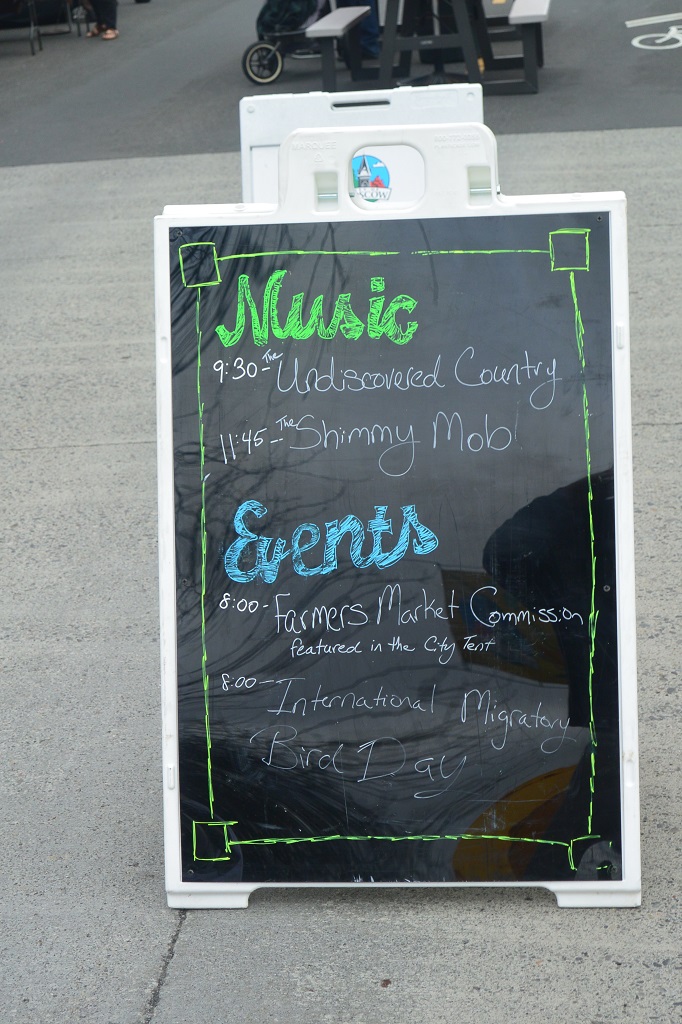 MARQUEE
SCOW
Music
9:30 - The Undiscovered Country
11:45 - The Shimmy Mob
Events
8:00 - Farmers Market Commission
featured in the City Tent
8:00 - International Migratory
Bird Day